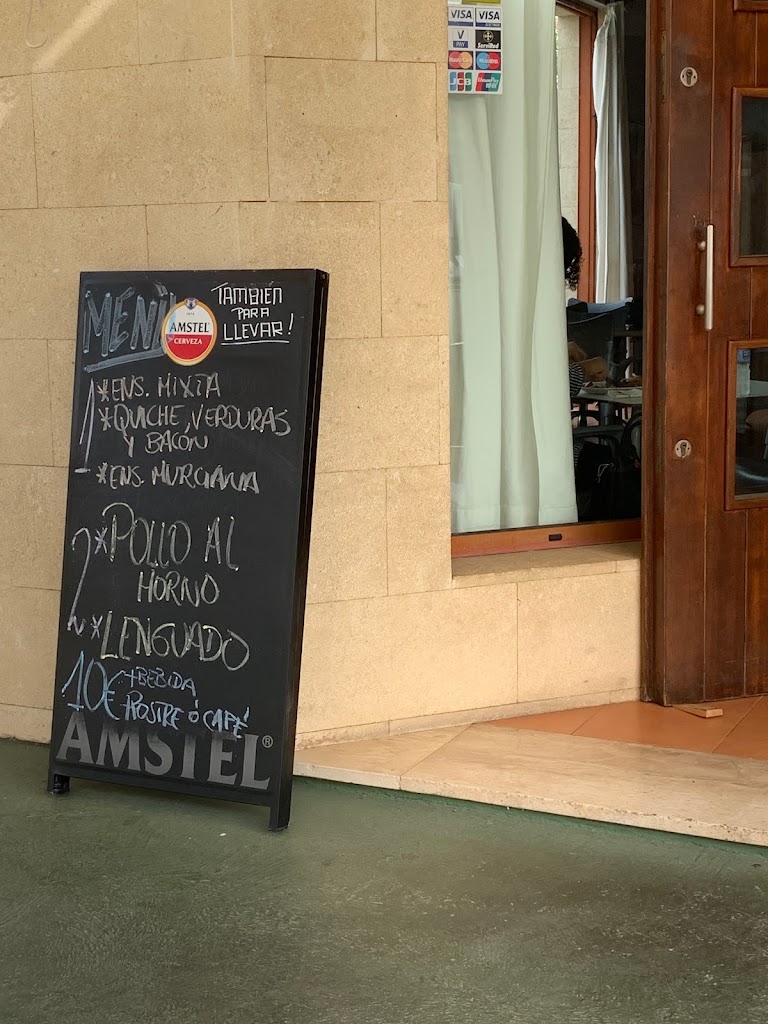 VISA VISA
V PAY ServiRed
MasterCard Maestro
JCB UnionPay
MENÚ
TAMBIÉN
PARA
LLEVAR!
AMSTEL
CERVEZA
1 *ENS. MIXTA
*QUICHE, VERDURAS
Y BACON
*ENS. MURCIANA
2 *POLLO AL
HORNO
*LENGUADO
10€ +BEBIDA
POSTRE Ó CAFÉ
AMSTEL®